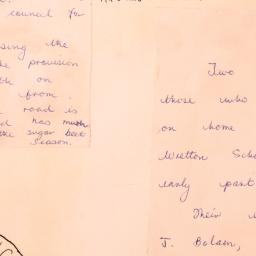 council for
sing the
provision
on
from.
road is
has much
sugar beet
season.
Two
those who
on home
Wretton Scho
early past
Their
T. Bolam,